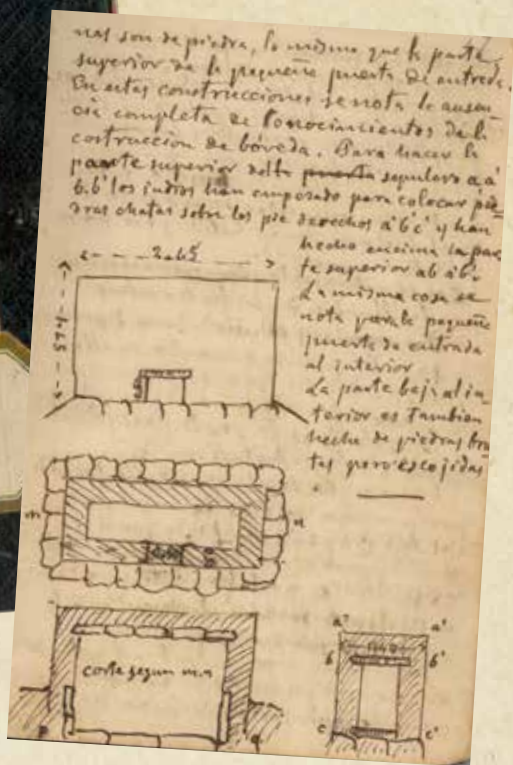 nas son de piedra, lo mismo que la parte
superior de la pequeñe puerta de entrada.
En estas construcciones se nota la ausen
cia completa de Conocimientos de la
costruccion de bóveda. Para hacer la
paarte superior delta puerta sepulcro a a'
b.b' los indios han empesado para colocar pie
dras chatas sobre los pie derechos a'b'c' y han
hecho encima la par
te superior ab a'b'c
La misma cosa se
nota para la pequeñe
puerta de entrada
al interior
La parte baja al in
terior es Tambien
hecha de piedras bru
tas pero escojidas
2.65
m
n
corte segun m.n
p
q
a'
a'
b
b'
c
c'